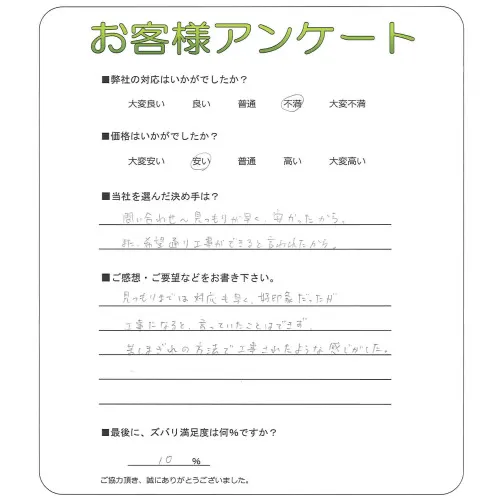 お客様アンケート
■弊社の対応はいかがでしたか？
大変良い 良い 普通 不満 大変不満
■価格はいかがでしたか？
大変安い 安い 普通 高い 大変高い
■当社を選んだ決め手は？
問い合わせ〜見つもりが早く、安かったから。
又、希望通り工事ができると言われたから。
■ご感想・ご要望などをお書き下さい。
見つもりまでは対応も早く、好印象だったが
工事になると、言っていたことはできず、
苦しまぎれの方法で工事されたような感じがした。
■最後に、ズバリ満足度は何%ですか？
10 %
ご協力頂き、誠にありがとうございました。